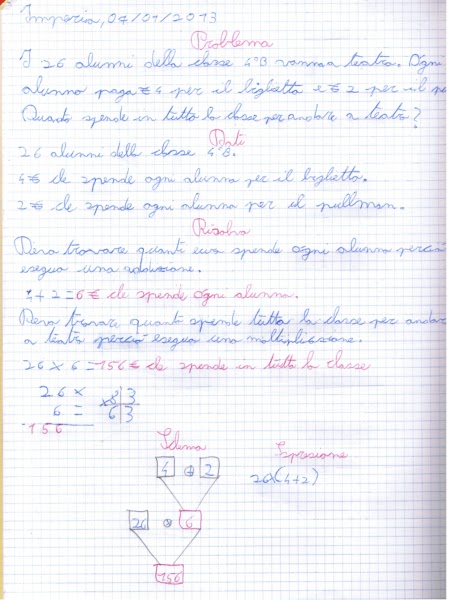 Imperia, 07/01/2013
Problema
I 26 alunni della classe 4°B vanno a teatro. Ogni
alunno paga € 4 per il biglietto e € 2 per il
Quanto spende in tutto la classe per andare a teatro?
Dati
26 alunni della classe 4°B.
4€ che spende ogni alunno per il biglietto.
2€ che spende ogni alunno per il pullman.
Risolvo
Devo trovare quanti euro spende ogni alunno perciò
eseguo una addizione.
4+2=6€ che spende ogni alunno.
Devo trovare quanto spende tutta la classe per andare
a teatro perciò eseguo una moltiplicazione.
26×6=156€ che spende in tutto la classe
26× ×8 3
6= 6 3
156
Schema Espressione
4 + 2 26×(4+2)
26 × 6
156